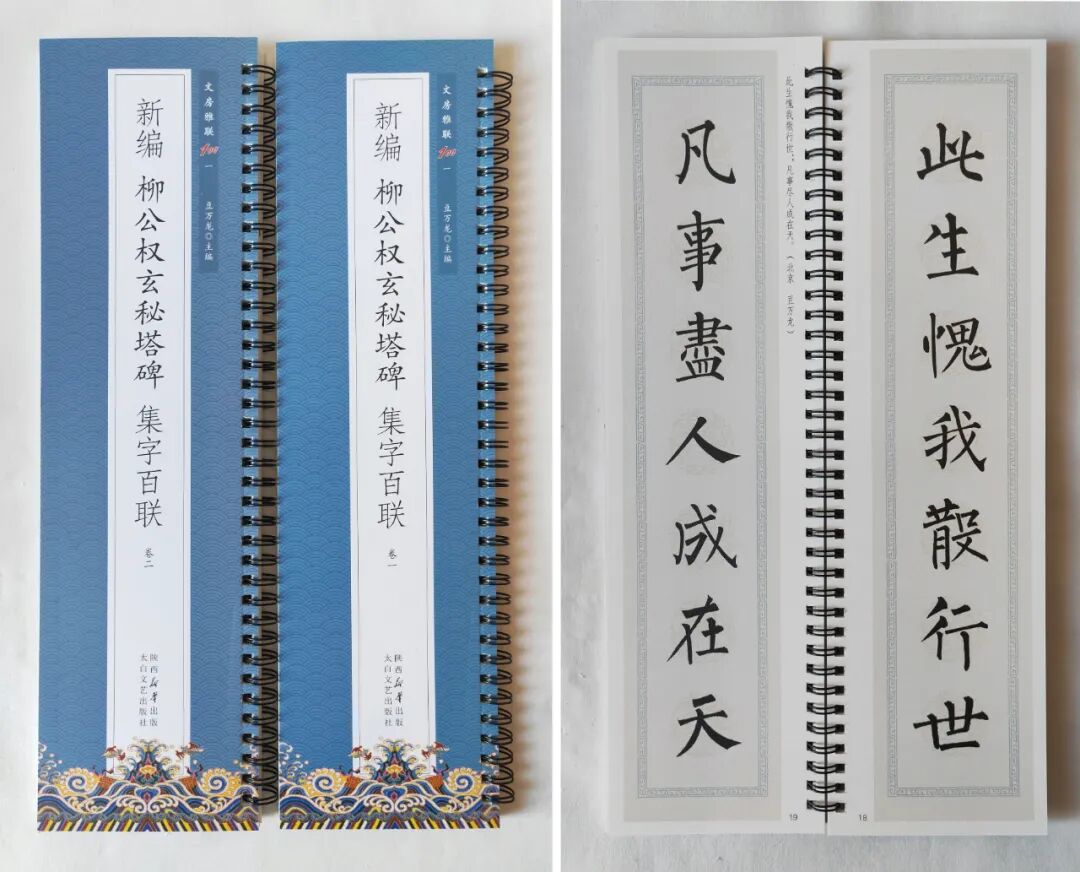 文房雅联 400 一 万龙◎主编
新编 柳公权玄秘塔碑 集字百联 卷二
陕西新华出版
太白文艺出版社
文房雅联 400 一 万龙◎主编
新编 柳公权玄秘塔碑 集字百联 卷一
陕西新华出版
太白文艺出版社
此生愧我散行世
18
此生愧我散行世；凡事尽人成在天。（北京 万龙）
凡事盡人成在天
19